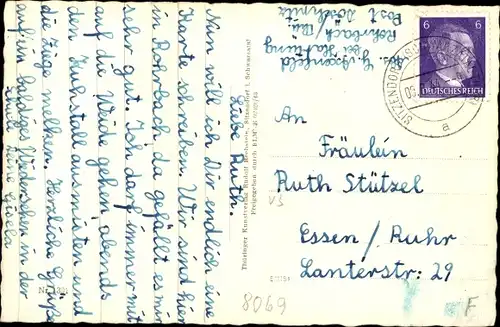 Liebe Ruth.
Nun will ich Dir endlich eine
Karte schreiben. Wir sind hier
in Rohrbach, da gefällt es mir
sehr gut. Ich darf immer mit
auf die Weide gehen, abends
den Kuhstall ausmisten und
die Ziege melken. Herzliche Grüße
auf ein baldiges Wiedersehen in der
Schule Deine Gisela
Nr.
Thüringer Kunstverlag Rudolf Bechstein, Sitzendorf i. Schwarzatal
Freigegeben durch RLM
Abs. G.
bei Hartung
Rohrbach / Thü
Post Döschnitz
6 6
DEUTSCHES REICH
SITZENDORF
a
An
Fräulein
Ruth Stützel
V3
Essen / Ruhr
Lanterstr. 29
8069
F